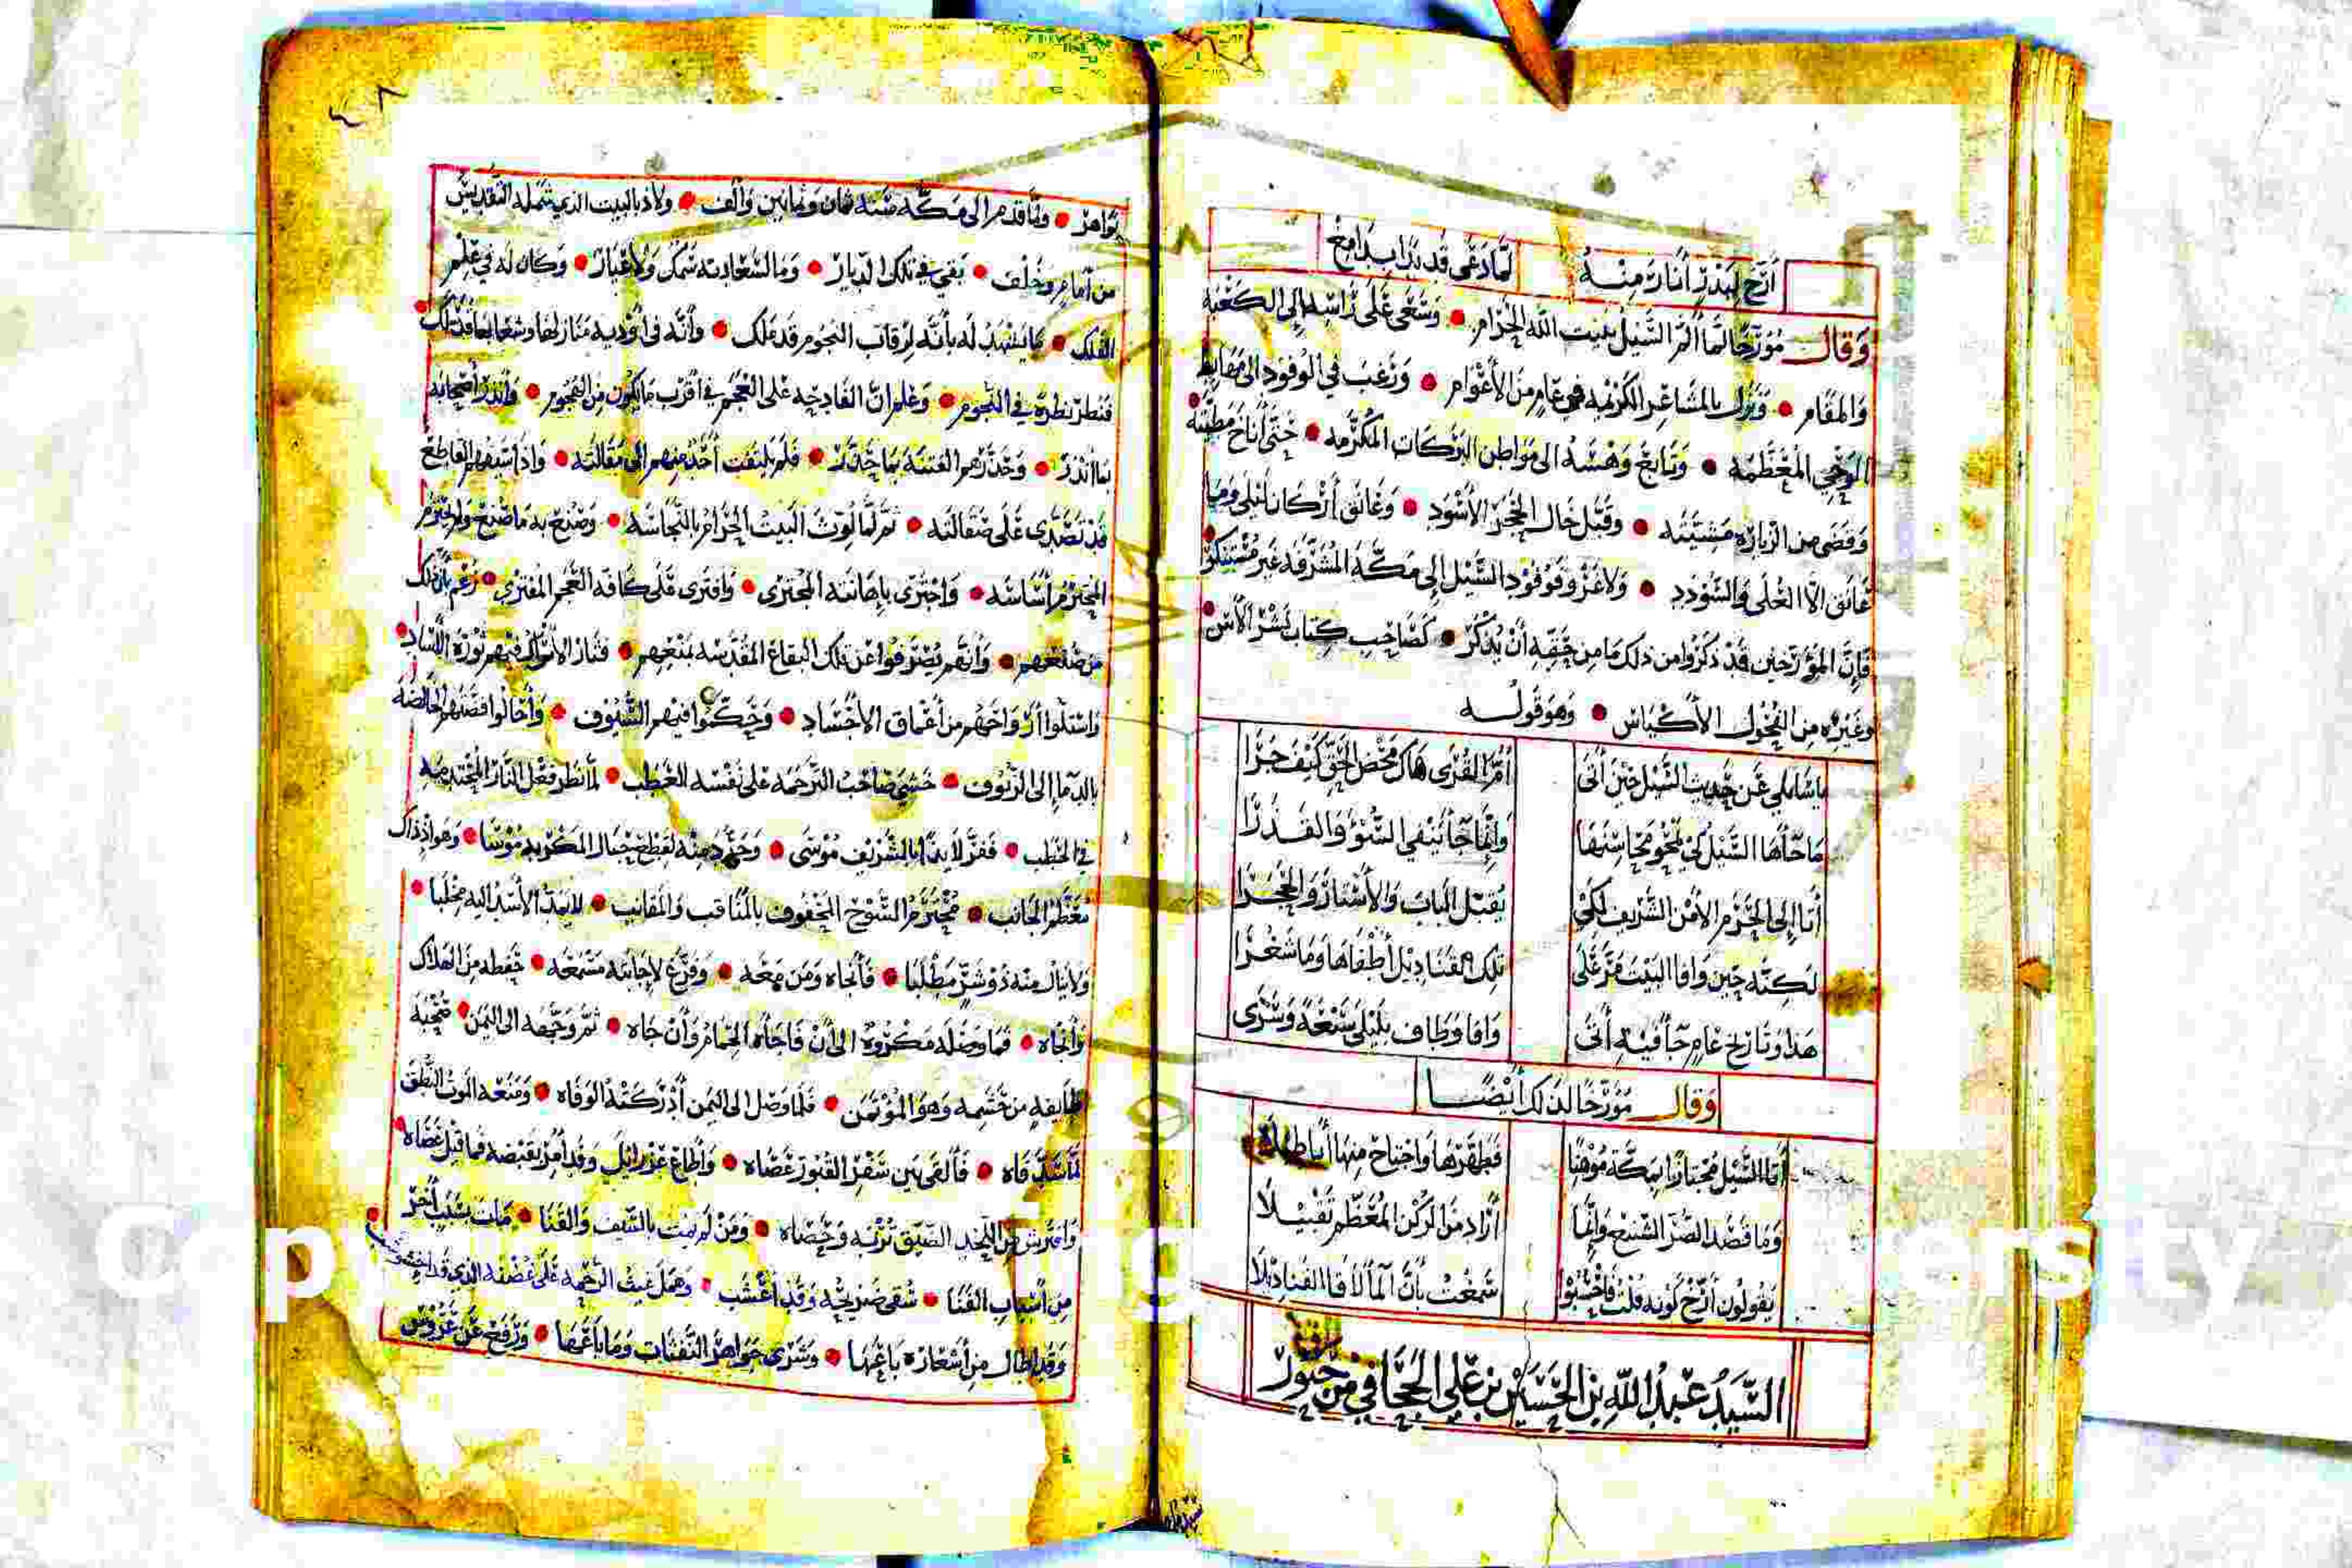 أرّخ لبدر أنار منه لما دعى قد بدا بدا مخ
وقال مؤرخا لما ألم السيل ببيت الله الحرام • وسعى على راسه إلى الكعبة
والمقام • ونزل بالمشاعر الكريمه في عام من الأعوام • ورغب في الوفود الى مهابط
الوحي المعظمه • وتابع وهسه الى مواطن البركات المكرمه • حتى أناخ مطيته
وقضى من الزياره مشيته • وقبل خال الحجر الأسود • وعانق أركانا لبلى وما
عانق الا العلى والسودد • ولا غرو فوفود السيل إلى مكة المشرفه غير مستنكر
فإن المؤرخين قد ذكروا من ذلك ما من حقه أن يذكر • كصاحب كتاب نشر الآس
وغيره من الفحول الأكياس • وهو قوله
يا سائلي عن حديث السيل حين أتى أم القرى هاك محض الحق كيف جرا
ما جاءها السيل كي يمحو محاسنها وإنما جا ينفي السوء والقذرا
أتا إلى الحرم الأمن الشريف لكي يقبل الباب والأستار والحجرا
لكنه حين وافا البيت مر على تلك القناديل أطفاها وما شعرا
هذا وتاريخ عام جا فيه أتى وافا وطاف بليلى سبعة وسرى
وقال مؤرخا لذلك أيضا
أتا السيل مجتازا ببكة موهنا فطهرها واجتاح منها أباطيلا
وما قصد الضر الشنيع وإنما أراد من الركن المعظم تقبيلا
يقولون أرخ كونه قلت فاحسبوا سمعت بأن الما لاقا القناديلا
السيد عبد الله بن الحسين بن علي الجحافي من حبور
تواهر • ولما قدم الى مكه سنة ثمان وثمانين وألف • ولاذ بالبيت الذي شمله التقديس
من أمام وخلف • بقي في تلك الديار • وما لسعادته سمك ولا غبار • وكان له في علم
الفلك • ما يشهد له بأنه لرقاب النجوم قد ملك • وأنه في أودية منازلها وشعابها قد سلك
فنظر نظرة في النجوم • وعلم ان الفادحه على العجم في أقرب ما يكون من الهجوم • وأنذر أصحابه
بما أنذر • وحذرهم الفتنة بما حذر • فلم يلتفت أحد منهم إلى مقالته • واذا سيفهم القاطع
قد تصدى على صقالته • ثم لما لوث البيت الحرام بالنجاسه • وصنع به ما صنع ولم يحترم
المجترم أساسه • واجترى بإهانته المجتري • وافترى على كافة العجم المفتري • زعم بأن ذلك
من صنعهم • وأنهم يصرفوا عن تلك البقاع المقدسه بمنعهم • فثار الأتراك فيهم ثورة الآساد
واستلوا أرواحهم من أعماق الأجساد • وحكموا فيهم السيوف • وأحالوا فضتهم الخالصة
بالدماء إلى الزيوف • خشي صاحب الترجمه على نفسه العطب • لما نظر فعل النار المحتدمه
في الحطب • ففر لائذا بالشريف موسى • وجرد منه لقطع حبال المكروه موسا • وهو اذ ذاك
معظم الجانب • محترم السوح المحفوف بالمناقب والمقانب • لا يمد الأسد اليه مخلبا
ولا ينال منه ذو شر مطلبا • فأنجاه ومن معه • وفرغ لإجابته مسمعه • حفظه من الهلاك
وأنجاه • فما وصل له مكروه الى أن فاجأه الحمام وأن جاه • ثم وجهه الى اليمن • صحبة
طايفه من حشمه وهو المؤتمن • فلما وصل الى اليمن أدركته الوفاه • ومنعه الموت النطق
لما سد فاه • فألقى بين سفر القبور عصاه • وأطاع عزرائيل وقد أمر بقبضه فما قيل عصاه
وافترش من اللحد الضيق تربه وحصاه • ومن لم يمت بالسيف والقنا • مات بسبب آخر
من أسباب الفنا • سقى ضريحه وقد أعشب • وهمل غيث الرحمه على غصنه الذي قد اخشوشب
وقد طال من أشعاره باعها • وشرى جواهر النفثات وما باعها • ورفع عن عروس